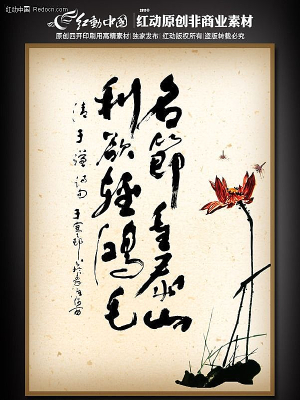 红动中国 Redocn.com
红動中国
红动原创非商业素材
原创四开印刷用高精素材|独家发布
红动版权所有|盗版转载必究
名節重泰山
利欲輕鴻毛
清于謙詩句